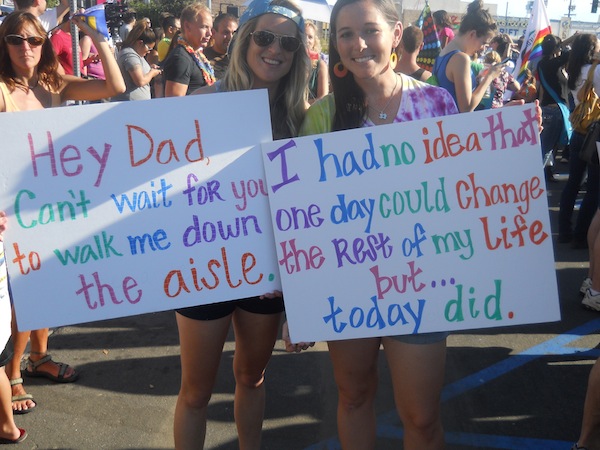 Hey Dad,
Can't wait for you
to walk me down
the aisle.
I had no idea that
one day could Change
the Rest of my Life
but...
today did.